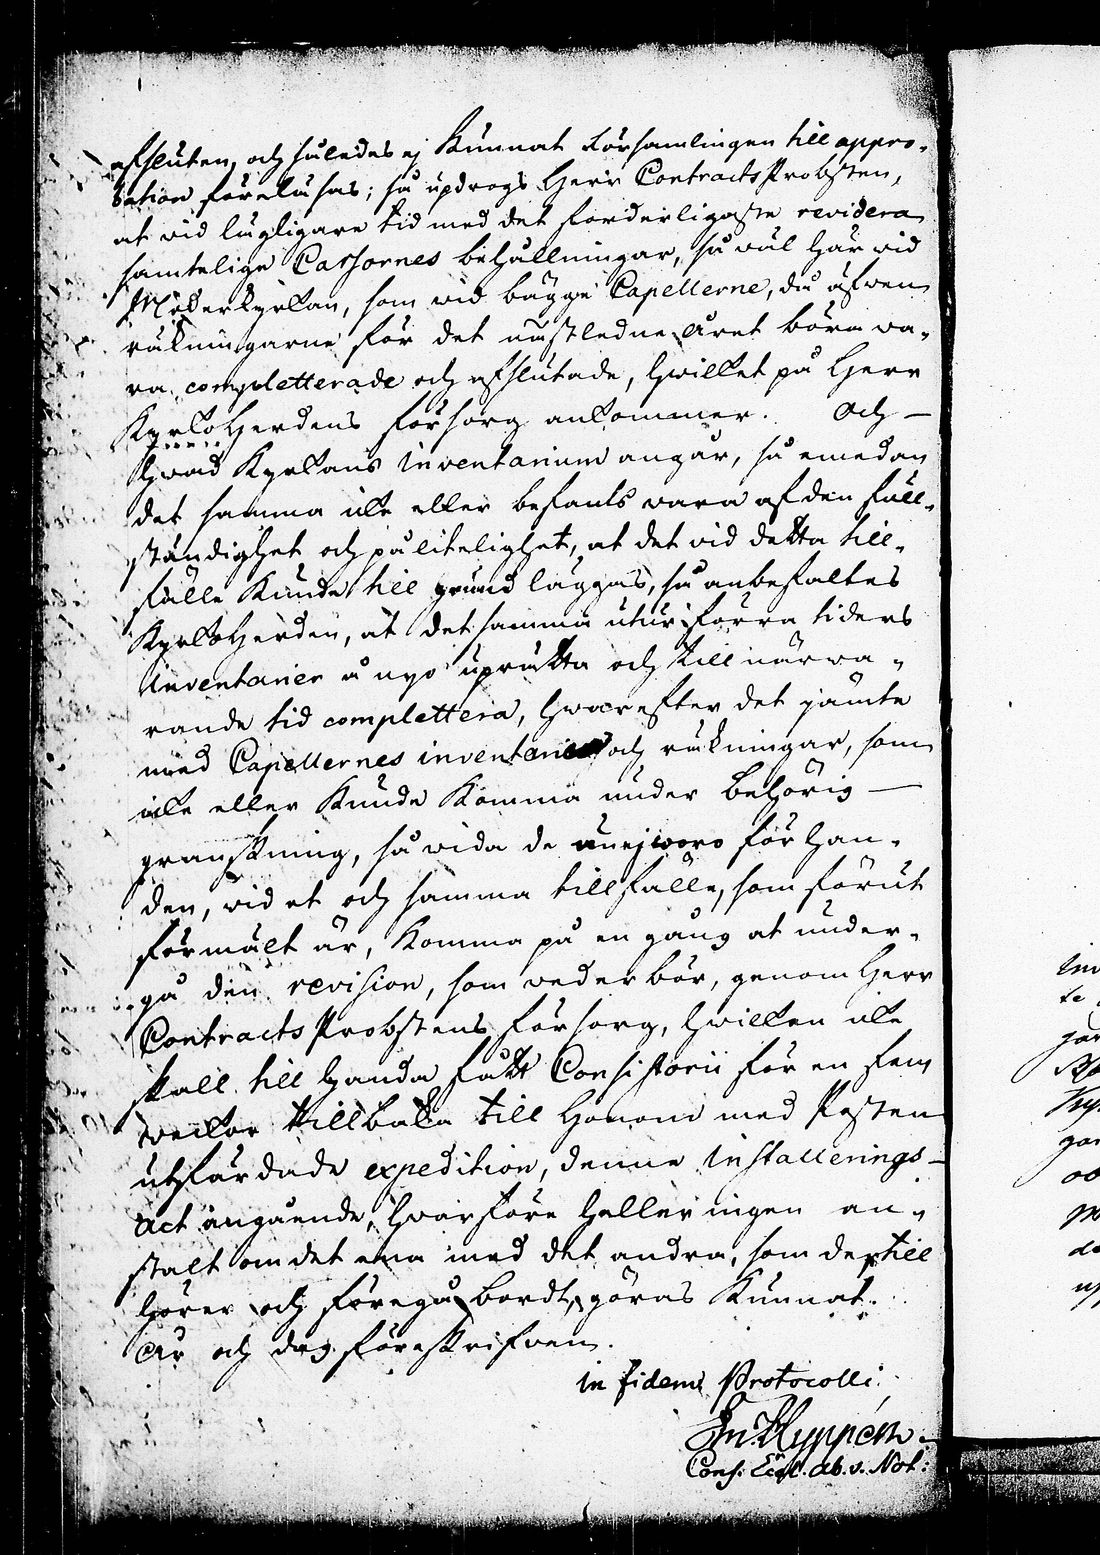 afsluten, och således ej kunnat Församlingen till appro-
bation föreläsas; så updrogs Herr ContractsProbsten,
at vid lägligare tid med det forderligaste revidera
samtelige Cassornes behållningar, så väl här vid
Moderkyrkan, som vid bägge Capellerne, då äfven
räkningarne för det nästledne året böra va-
ra completterade och afslutade, hvilket på Herr
KyrkoHerdens försorg ankommer. Och —
hvad Kyrkans inventarium angår, så emedan
det samma icke eller befants vara af den full-
ständighet och pålitelighet, at det vid detta till-
fälle kunde till grund läggas, så anbefaltes
KyrkoHerden, at det samma utur förra tiders
inventarier å nyo uprätta och till närva-
rande tid complettera, hvarefter det jämte
med Capellernes inventarier och räkningar, som
icke eller kunde komma under behörig —
granskning, så vida de än ej woro för han-
den, vid et och samma tillfälle, som förut
förmält är, komma på en gång at under-
gå den revision, som vederbör, genom Herr
ContractsProbstens försorg, hvilken icke
skall till handa fått Consistorii för en fem
veckor tillbaka till honom med Posten
utfärdade expedition, denne installerings-
act angående, hvarföre heller ingen an-
stalt om det ena med det andra, som dertill
hörer och föregå bordt, göras kunnat.
År och dag föreskrifven.
in fidem Protocolli
Hyppén
Cons: Eccl. Ab. v. Not: